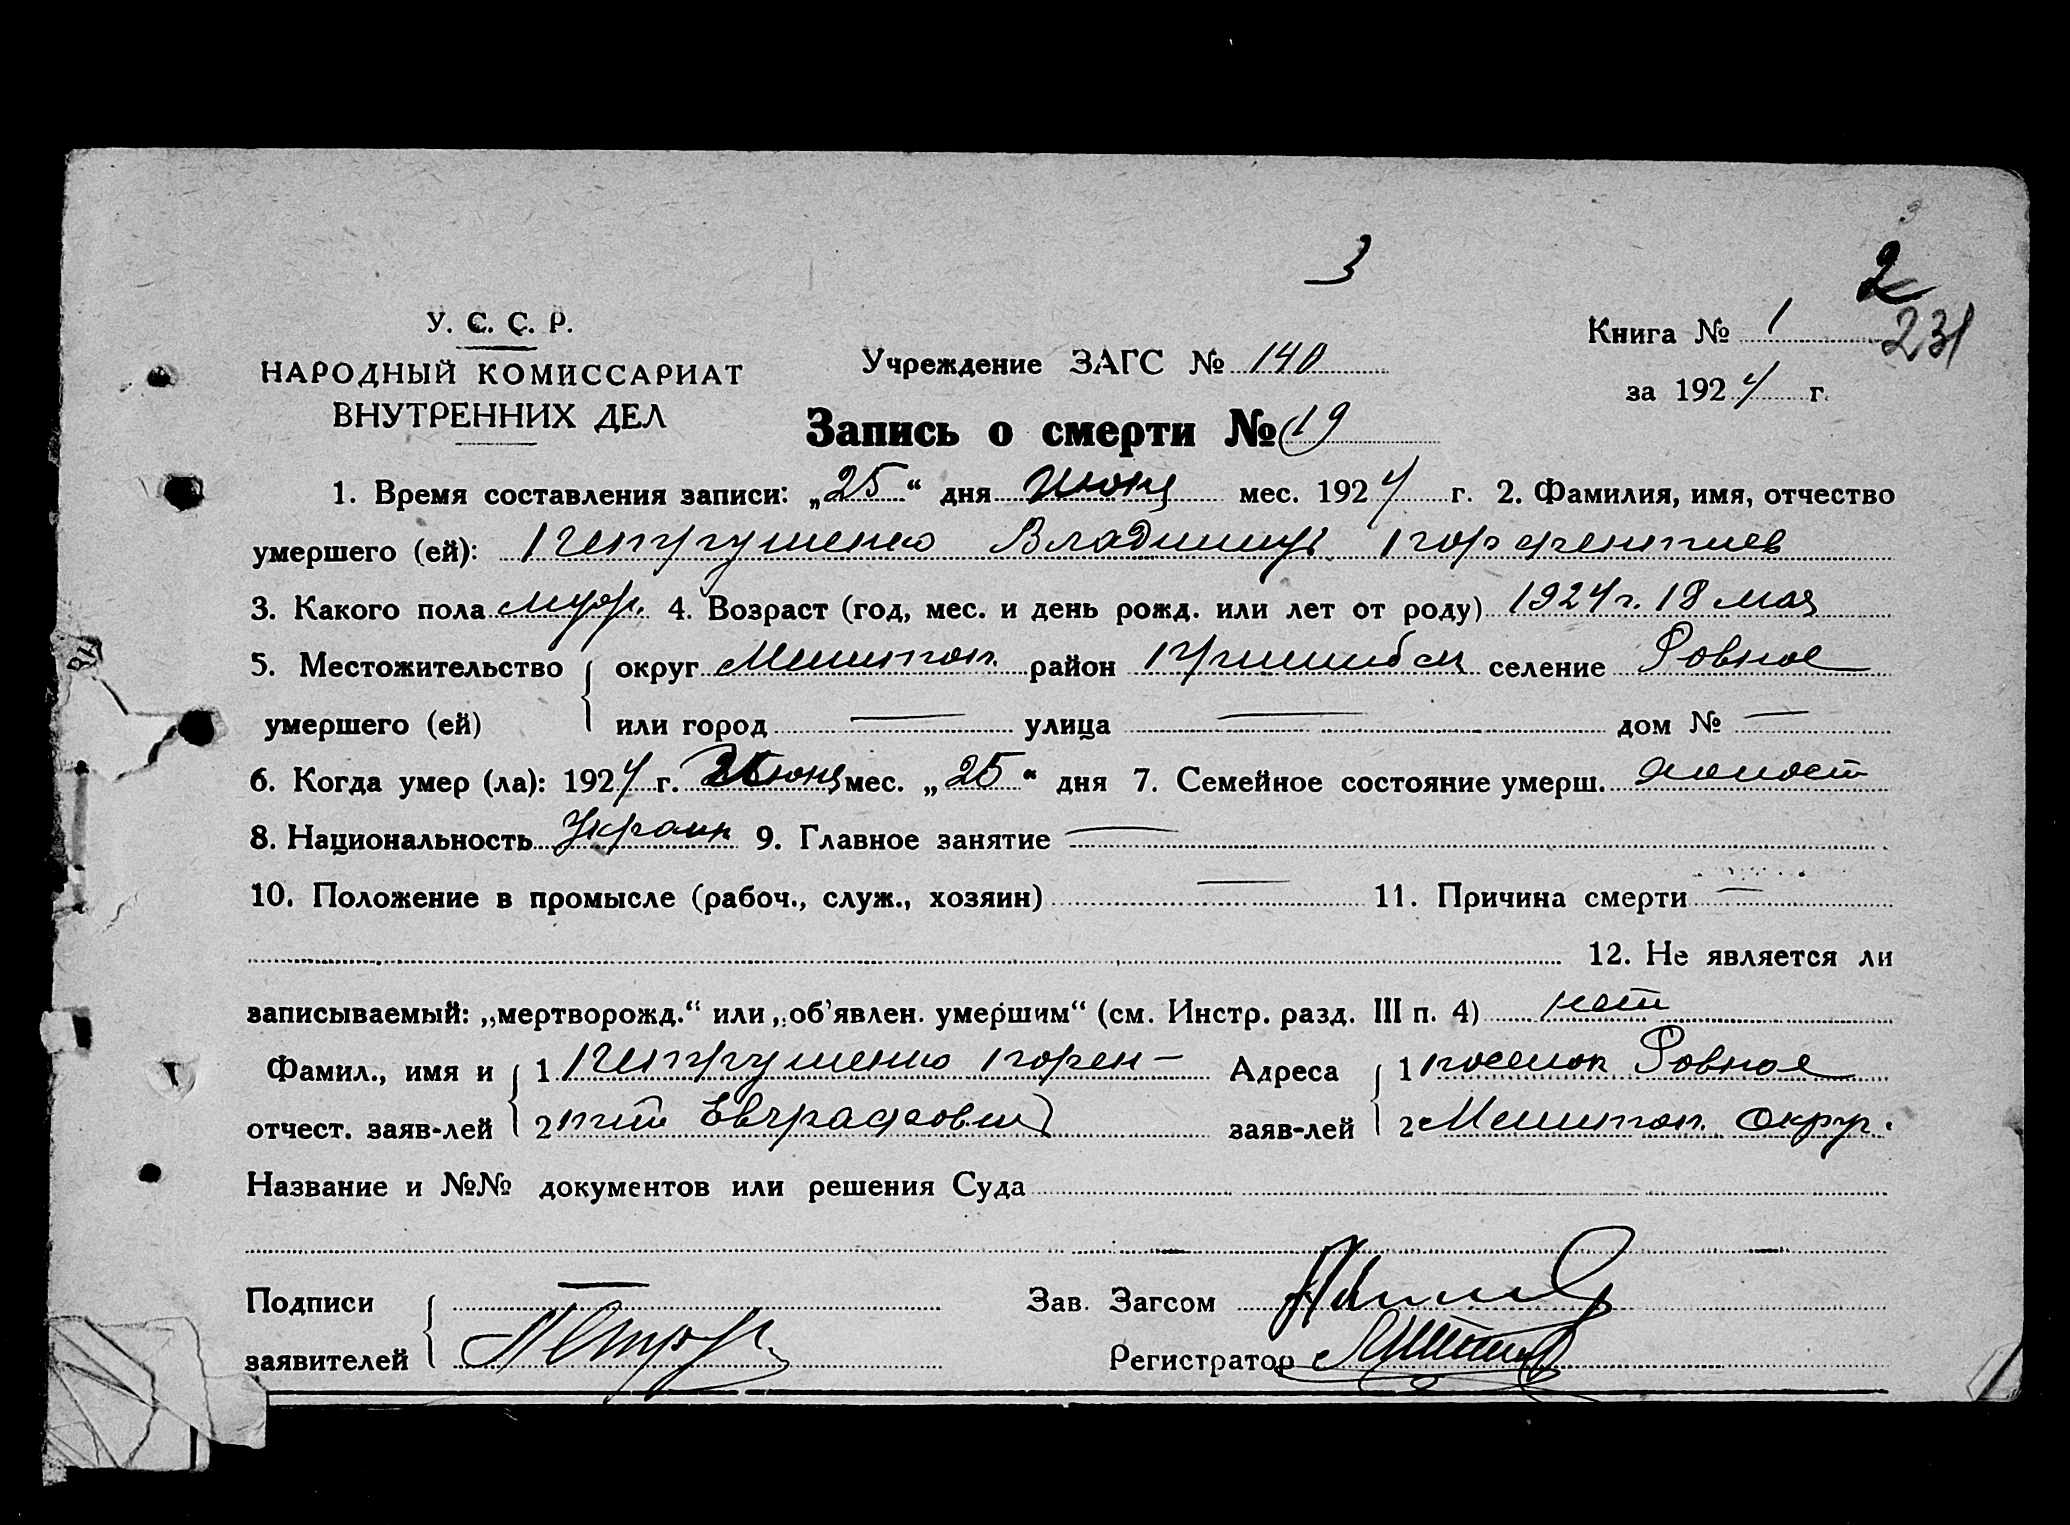 3
2
231
У. С. С. Р.
НАРОДНЫЙ КОМИССАРИАТ
ВНУТРЕННИХ ДЕЛ
Учреждение ЗАГС № 140
Книга № 1
за 1924 г.
Запись о смерти № 19
1. Время составления записи: „25“ дня Июня мес. 1924 г. 2. Фамилия, имя, отчество
умершего (ей): Петрушенко Владимир Порфентиев
3. Какого пола муж. 4. Возраст (год, мес. и день рожд. или лет от роду) 1924 г. 18 мая
5. Местожительство округ Мелитоп. район Пришибск селение Ровное
умершего (ей) или город — улица — дом № —
6. Когда умер (ла): 1924 г. Июня мес. „25“ дня 7. Семейное состояние умерш. холост
8. Национальность Украин 9. Главное занятие —
10. Положение в промысле (рабоч., служ., хозяин) — 11. Причина смерти —
12. Не является ли
записываемый: „мертворожд.“ или „об'явлен. умершим“ (см. Инстр. разд. III п. 4) нет
Фамил., имя и 1 Петрушенко Порен- Адреса 1 поселок Ровное
отчест. заяв-лей 2 тий Евграфович заяв-лей 2 Мелитоп. округ.
Название и №№ документов или решения Суда
Подписи — Зав. Загсом
заявителей Регистратор